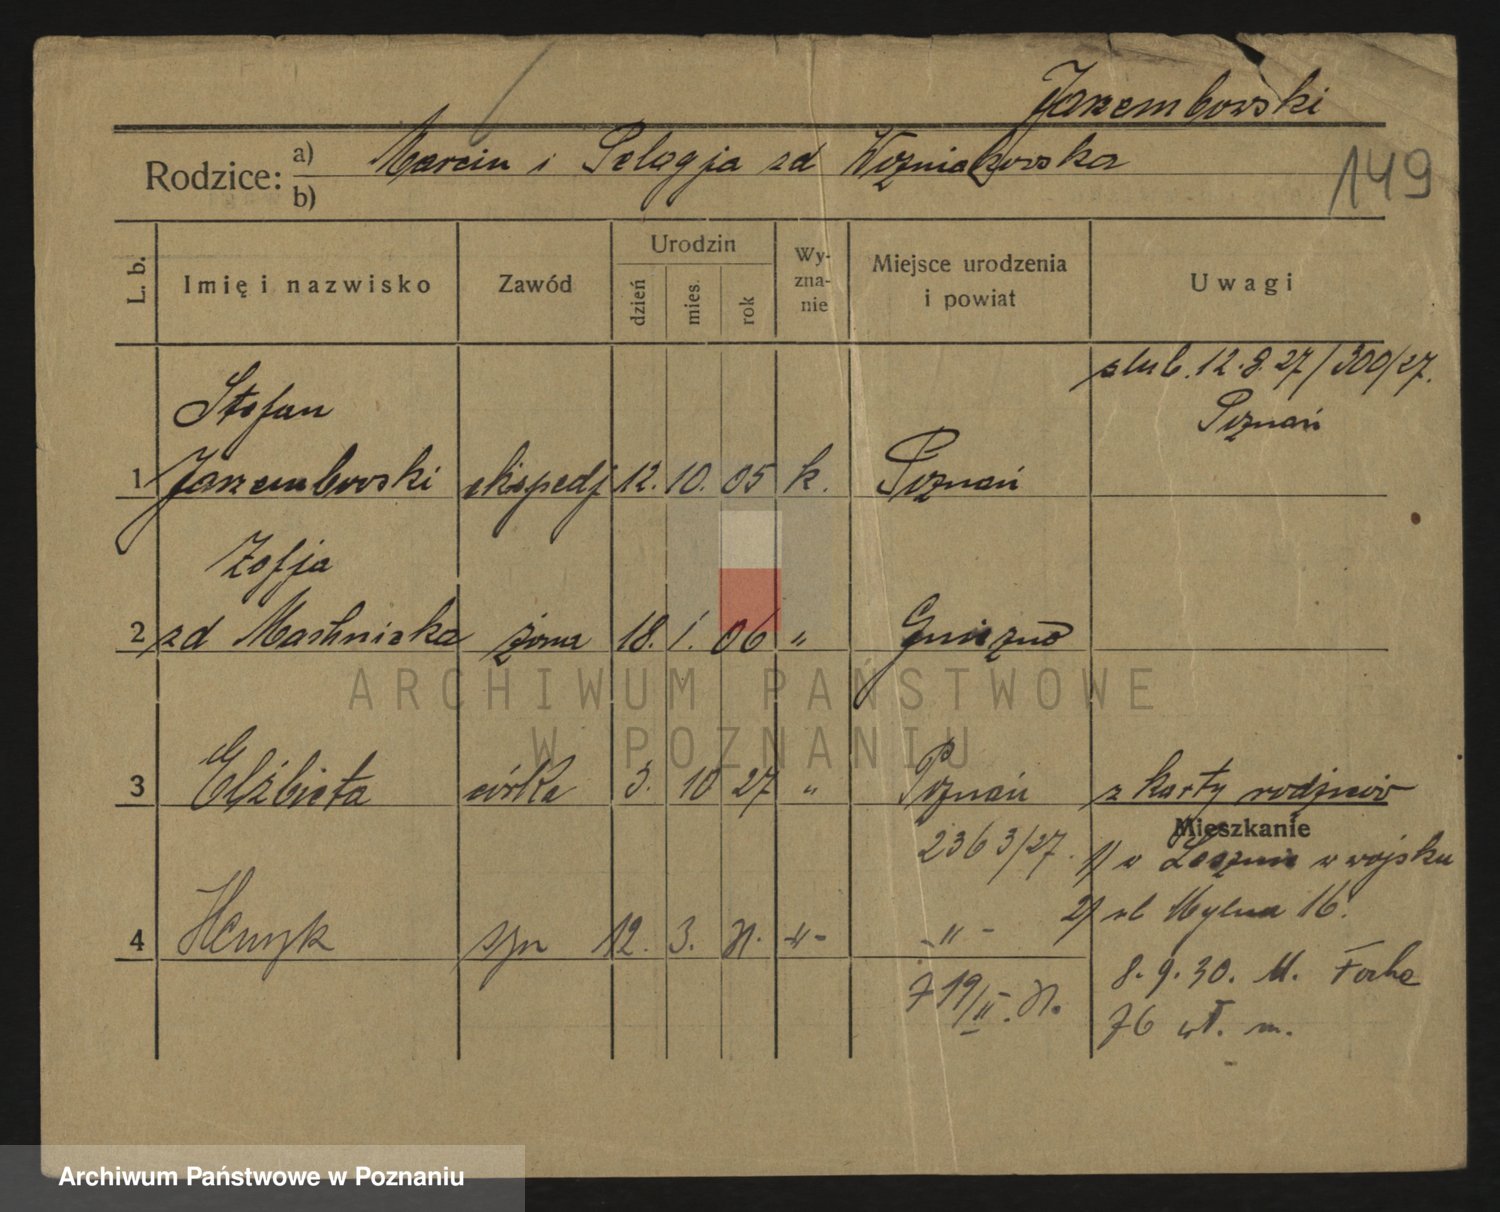 Jarzembowski
Rodzice: a) b) Marcin i Pelagja zd Woźniakowska
149
L. b. Imię i nazwisko Zawód Urodzin dzień mies. rok Wy-zna-nie Miejsce urodzenia i powiat Uwagi
ślub. 12.8.27/300/27.
Poznań
Stefan
1 Jarzembowski ekspedj 12. 10. 05 k. Poznań
Zofja
2 zd żona 18. 1. 06 " Gniezno
ARCHIWUM PAŃSTWOWE
W POZNANIU
3 Elżbieta córka 3. 10 27 " Poznań z karty rodziców
2363/27.
Mieszkanie
1) w Lesznie w wojsku
2) ul Mylna 16.
4 Henryk syn 12. 3. -"- -"-
8.9.30. M. Focha
76 wł. m.
Archiwum Państwowe w Poznaniu